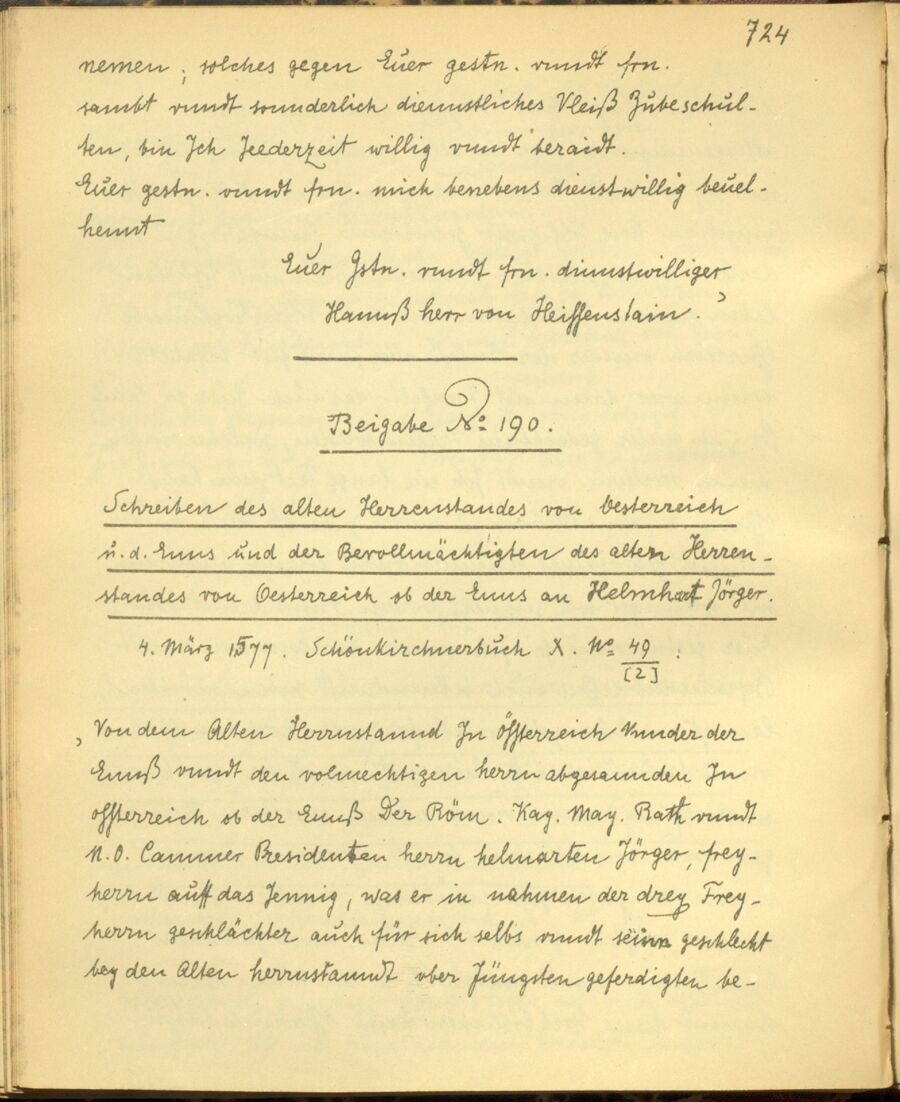 724
nemen; solches gegen Euer gestn. vundt frn.
sambt vundt sonnderlich diennstliches Vleiß Zubeschul-
ten, bin Ich Jeederzeit willig vundt beraidt.
Euer gestn. vundt frn. mich benebens dienstwillig beuel-
hennt
Euer Gstn. vundt frn. dinnstwilliger
Hannß herr von Heissenstain."
Beigabe No: 190.
Schreiben des alten Herrenstandes von Oesterreich
u. d. Enns und der Bevollmächtigten des alten Herren-
standes von Oesterreich ob der Enns an Helmhart Jörger.
4. März 1577. Schönkirchnerbuch X. No 49/[2].
„Von dem Alten Herrnstannd In Össterreich Vnnder der
Ennß vundt den volmechtigen herrn abgesannden In
össterreich ob der Ennß Der Röm. Kay. May. Rath vundt
N. O. Cammer Presidenten herrn helmarten Jörger, frey-
herrn auff das Jennig, was er in nahmen der drey Frey-
herrn geschlächter auch für sich selbs vundt seinn geschlecht
bey den Alten herrnstanndt vber Jüngsten geferdigten be-